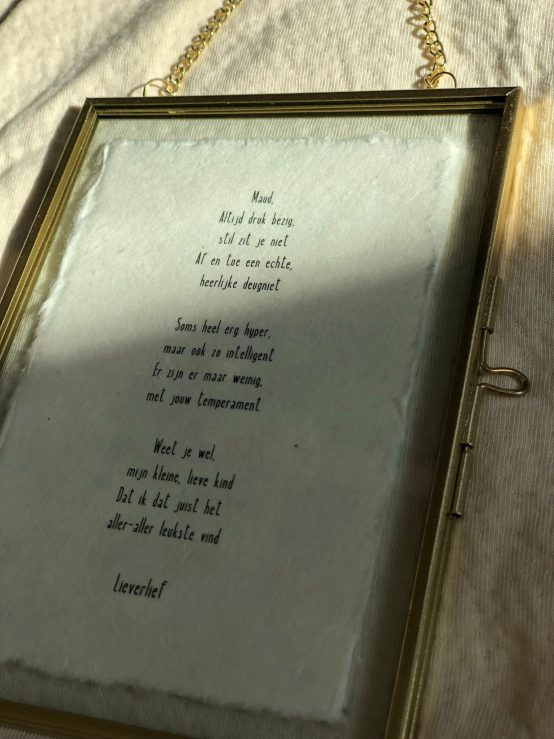 Maud,
Altijd druk bezig,
stil zit je niet
Af en toe een echte,
heerlijke deugniet
Soms heel erg hyper,
maar ook zo intelligent
Er zijn er maar weinig,
met jouw temperament
Weet je wel,
mijn kleine, lieve kind
Dat ik dat juist het
aller-aller leukste vind
Lieverlief